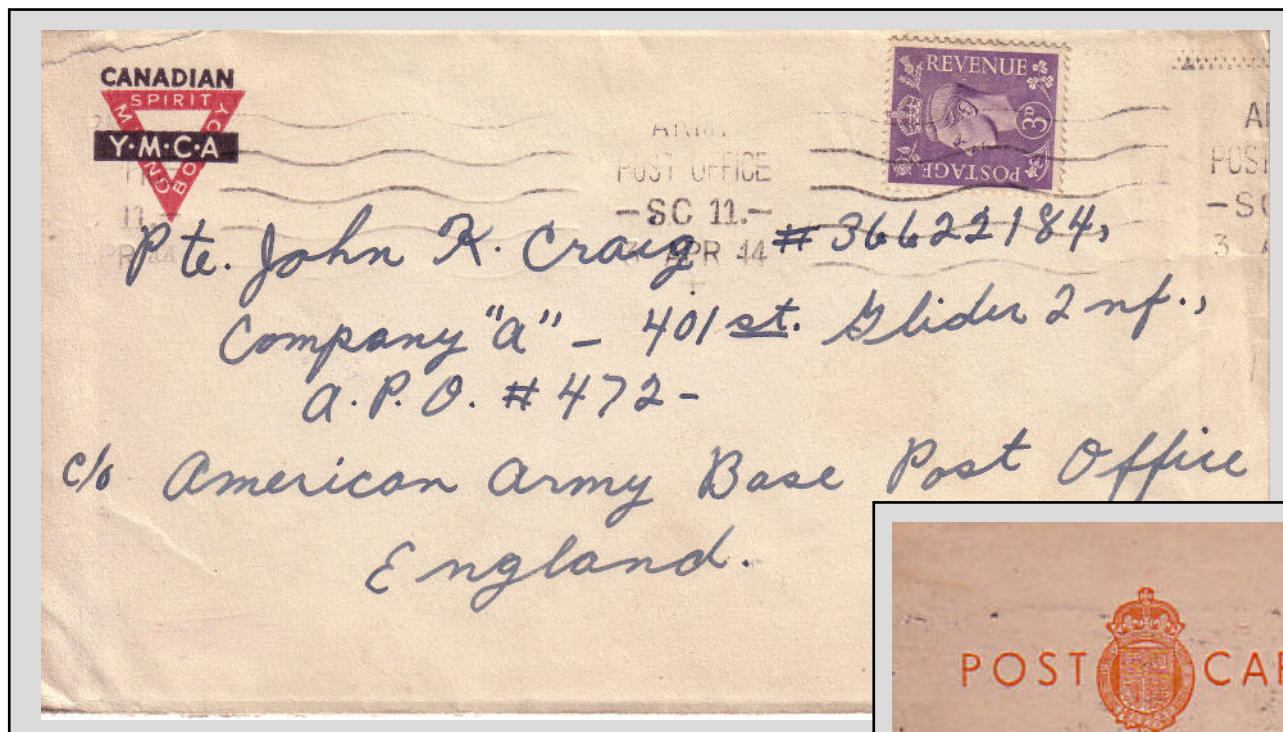 CANADIAN
SPIRIT
MIND
BODY
Y·M·C·A
REVENUE
3D
POSTAGE
ARMY
POST OFFICE
-SC 11.-
3 APR 44
A
POST
-SC
3 A
11.-
PR 44
Pte. John K. Craig #36622184,
Company "A" - 401st. Glider Inf.,
A.P.O. #472-
c/o American Army Base Post Office
England.
POST CAR